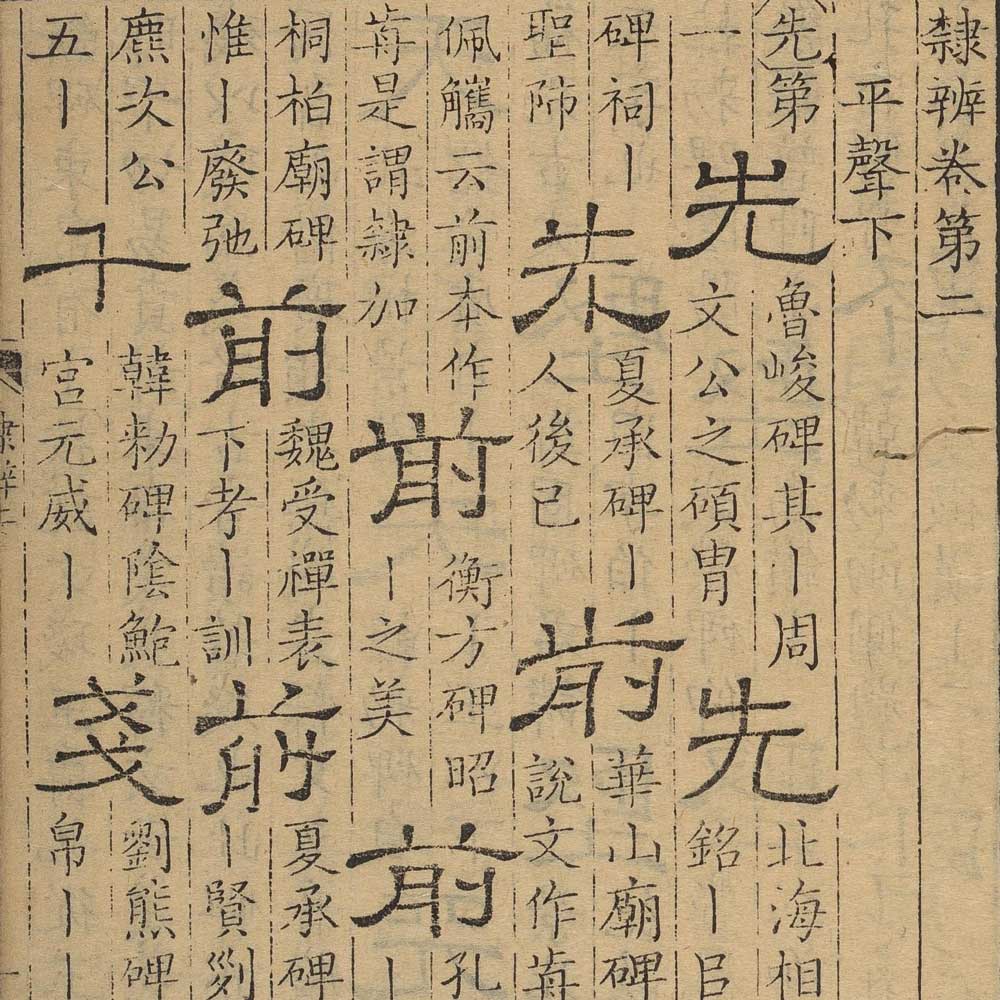 隸辨卷第二
平聲下
先第
一
先
魯峻碑其丨周
文公之碩冑
先
北海相
銘丨臣
碑祠丨
聖師
先
夏承碑丨
人後已
前
華山廟碑
說文作歬
佩觿云前本作
歬是謂隸加
前
衡方碑昭
丨之美
前
孔
丨
桐柏廟碑
惟丨廢弛
前
魏受禪表
下考丨訓
前
夏承碑
丨賢剡
麃次公
五丨
千
韓勑碑陰鮑
宮元威丨
戔
劉熊碑
帛丨丨